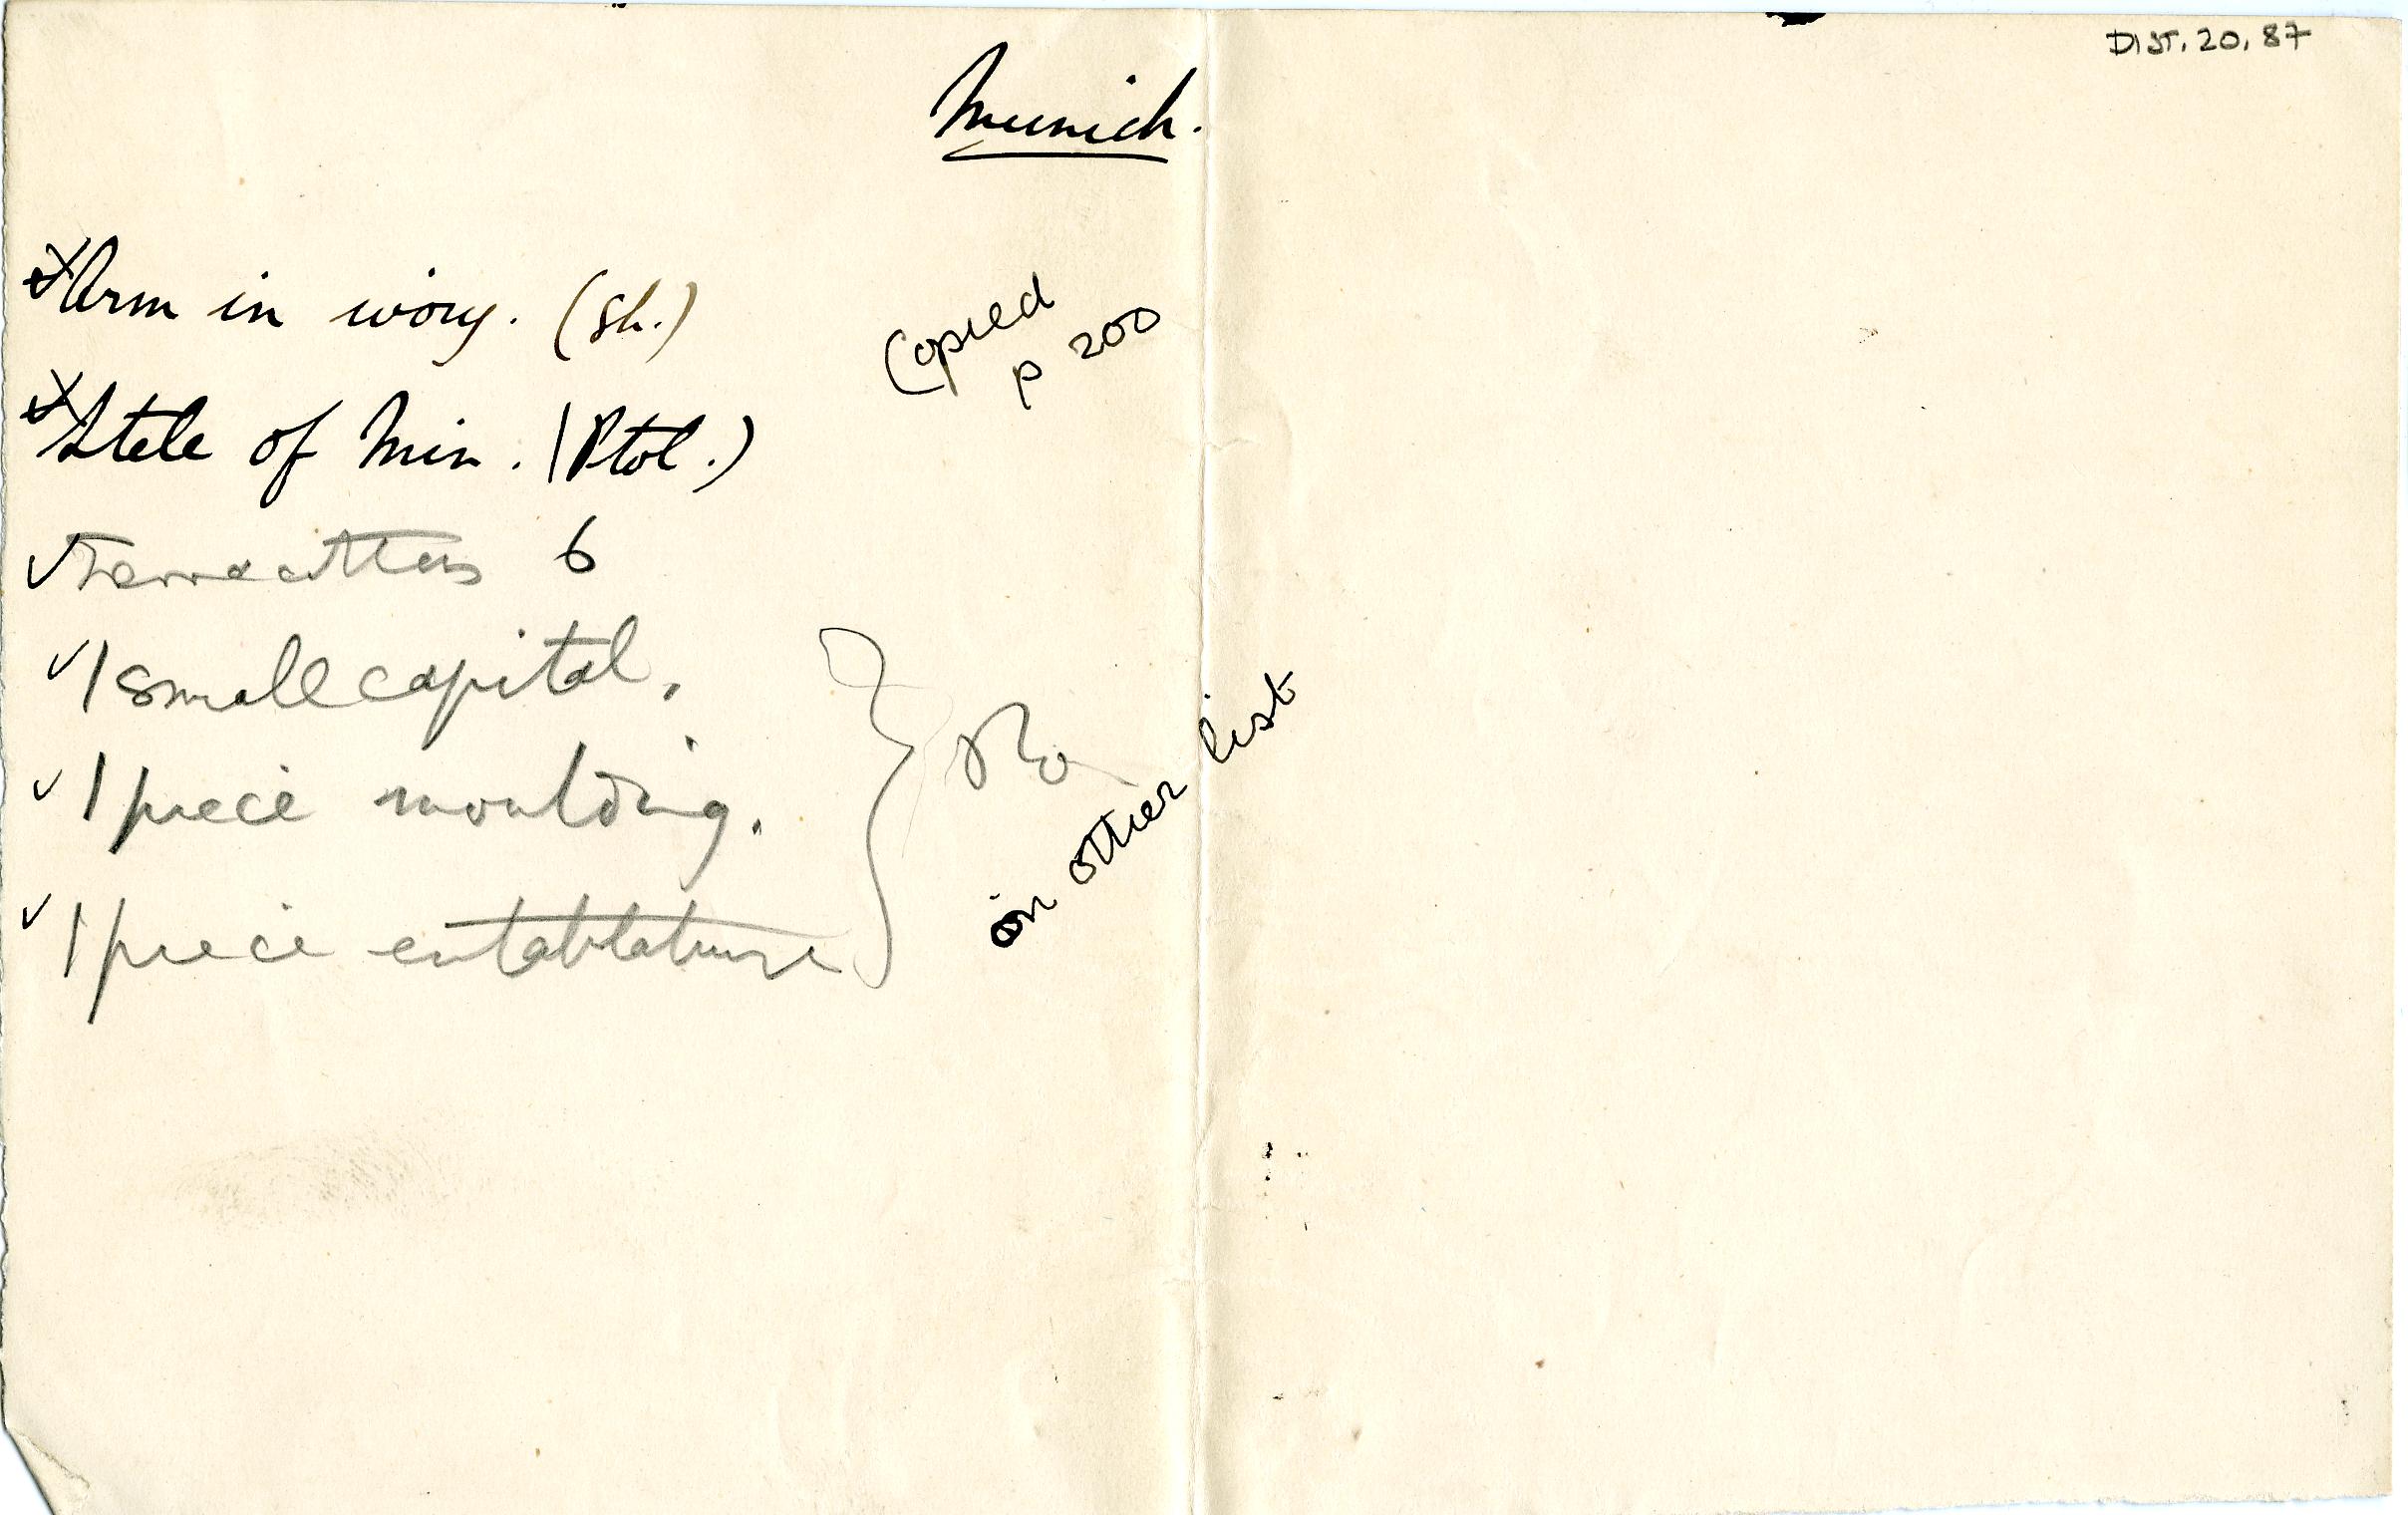 DIST. 20. 87
Munich.
Arm in ivory. (Sh.)
Copied
p 200
Stele of Min. (Ptol.)
✓ Terracottas 6
✓ 1 small capital.
✓ 1 piece moulding.
✓ 1 piece entablature
on other list